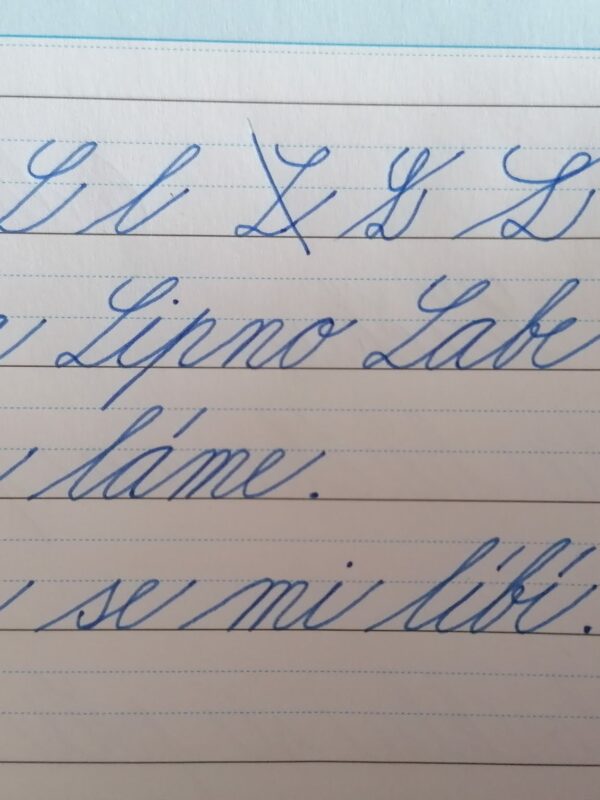 L l L L L
Lipno Labe
láme.
se mi líbí.